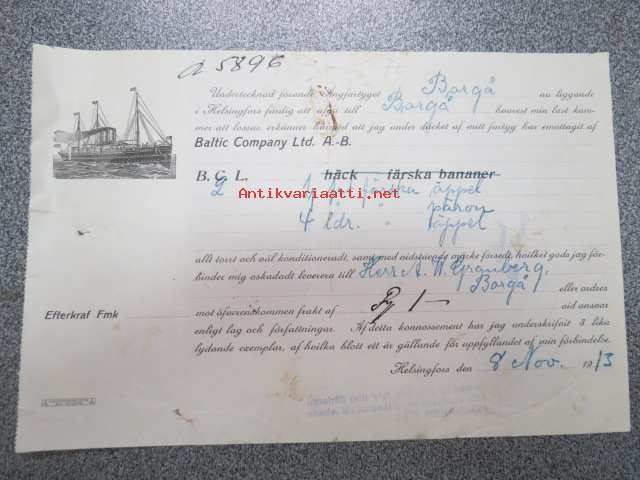 a 5896
Undertecknad förande ångfartyget Borgå nu liggande
i Helsingfors färdig att afgå till Borgå hvarest min last kom-
mer att lossas, erkänner härmed att jag under däcket af mitt fartyg har emottagit af
Baltic Company Ltd. A.-B.
B. C. L. häck färska bananer
Antikvariaatti.net
2 färska äppel
" päron
4 ldr. " äppel
allt torrt och väl konditioneradt, samt med vidstående märke försedt, hvilket gods jag för-
binder mig oskadadt leverera till Herr A. W. Granberg,
Borgå eller ordres
mot öfverenskommen frakt af Fm 1— vid ansvar
Efterkraf Fmk
enligt lag och författningar. Af detta konnossement har jag underskrifvit 3 lika
lydande exemplar, af hvilka blott ett är gällande för uppfyllandet af min förbindelse.
Helsingfors den 8 Nov. 1913